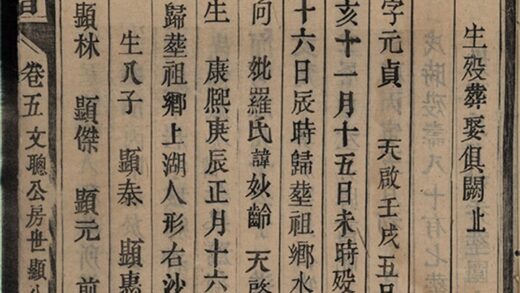 生殁葬娶俱闕止
字元貞　天啟壬戌五日
亥十一月十五日未時殁
十六日辰時歸塟祖鄉水
向　妣羅氏諱妙齡　天啟
生　康熙庚辰正月十六
歸塟祖鄉上湖人形右沙
生八子　顯泰　顯惠
顯林　顯傑　顯元　前
卷五文聰公房世顯公